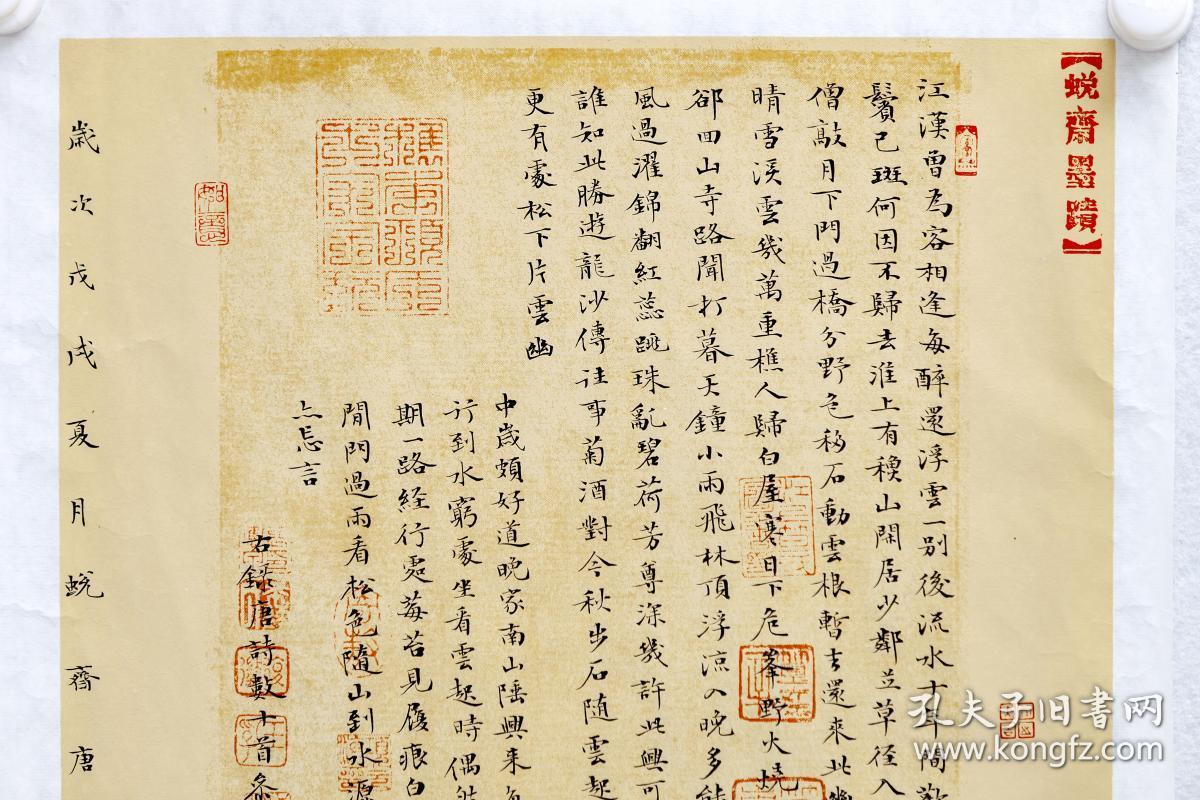 【蜕齋墨蹟】
江漢曾為客相逢每醉還浮雲一别後流水十年間歡
鬢已斑何因不歸去淮上有穐山閑居少鄰並草徑入
僧敲月下門過橋分野色移石動雲根暫去還來此幽
晴雪溪雲幾萬重樵人歸白屋寒日下危峯野火燒
卻回山寺路聞打暮天鐘小雨飛林頂浮涼入晚多能
風過濯錦翻紅蕊跳珠亂碧荷芳尊深幾許此興可
誰知此勝遊龍沙傳往事菊酒對今秋步石随雲起
更有處松下片雲幽
中歲頗好道晚家南山陲興来每
行到水窮處坐看雲起時偶然
期一路経行處莓苔見履痕白
閒門過雨看松色隨山到水源
亡言
右錄唐詩數十首
歲次戊戌夏月蜕齋唐
如意
孔夫子旧书网
www.kongfz.com